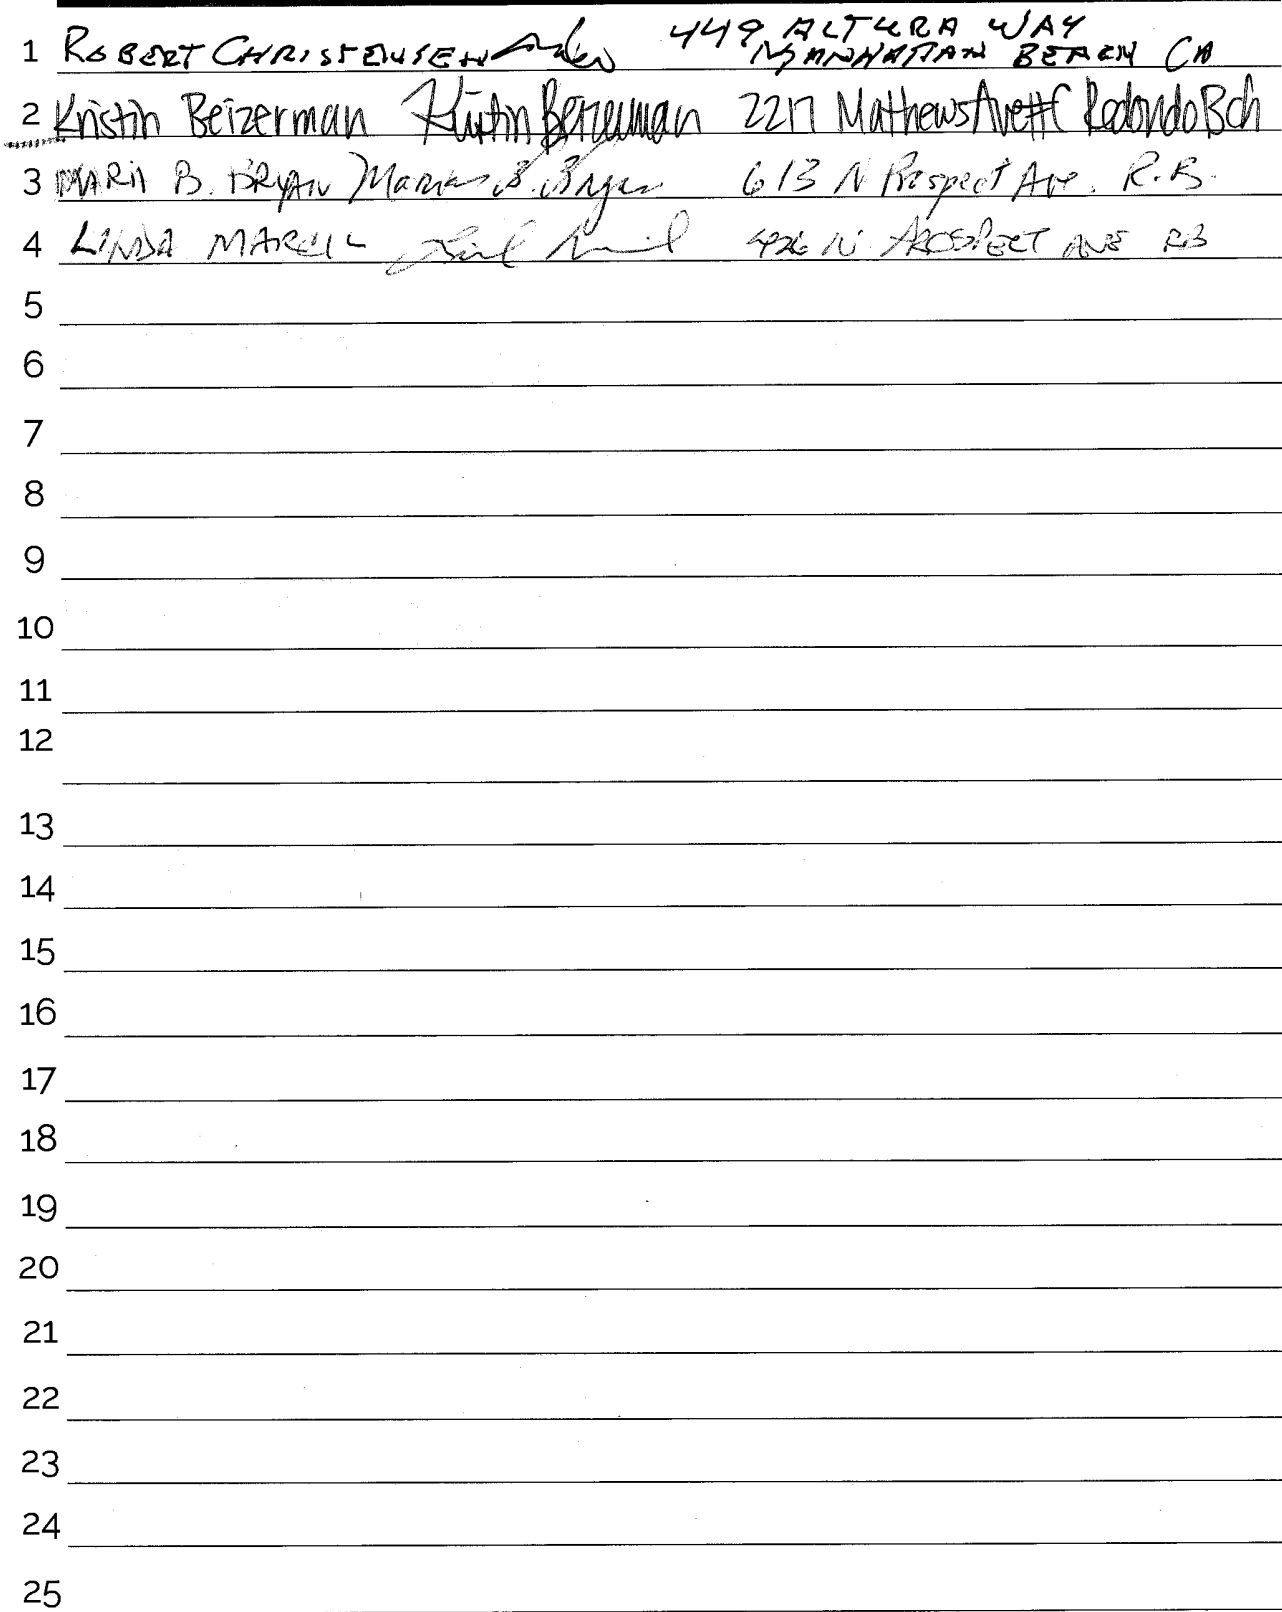 1 ROBERT CHRISTENSEN 449 ALTURA WAY
MANHATTAN BEACH CA
2 Kristin Beizerman Kristin Beizerman 2217 Mathews Ave #C Redondo Bch
3 B. BRYAN B. Bryan 613 N Prospect Ave. R.B.
4 LINDA MARCIL N. PROSPECT AVE RB
5
6
7
8
9
10
11
12
13
14
15
16
17
18
19
20
21
22
23
24
25